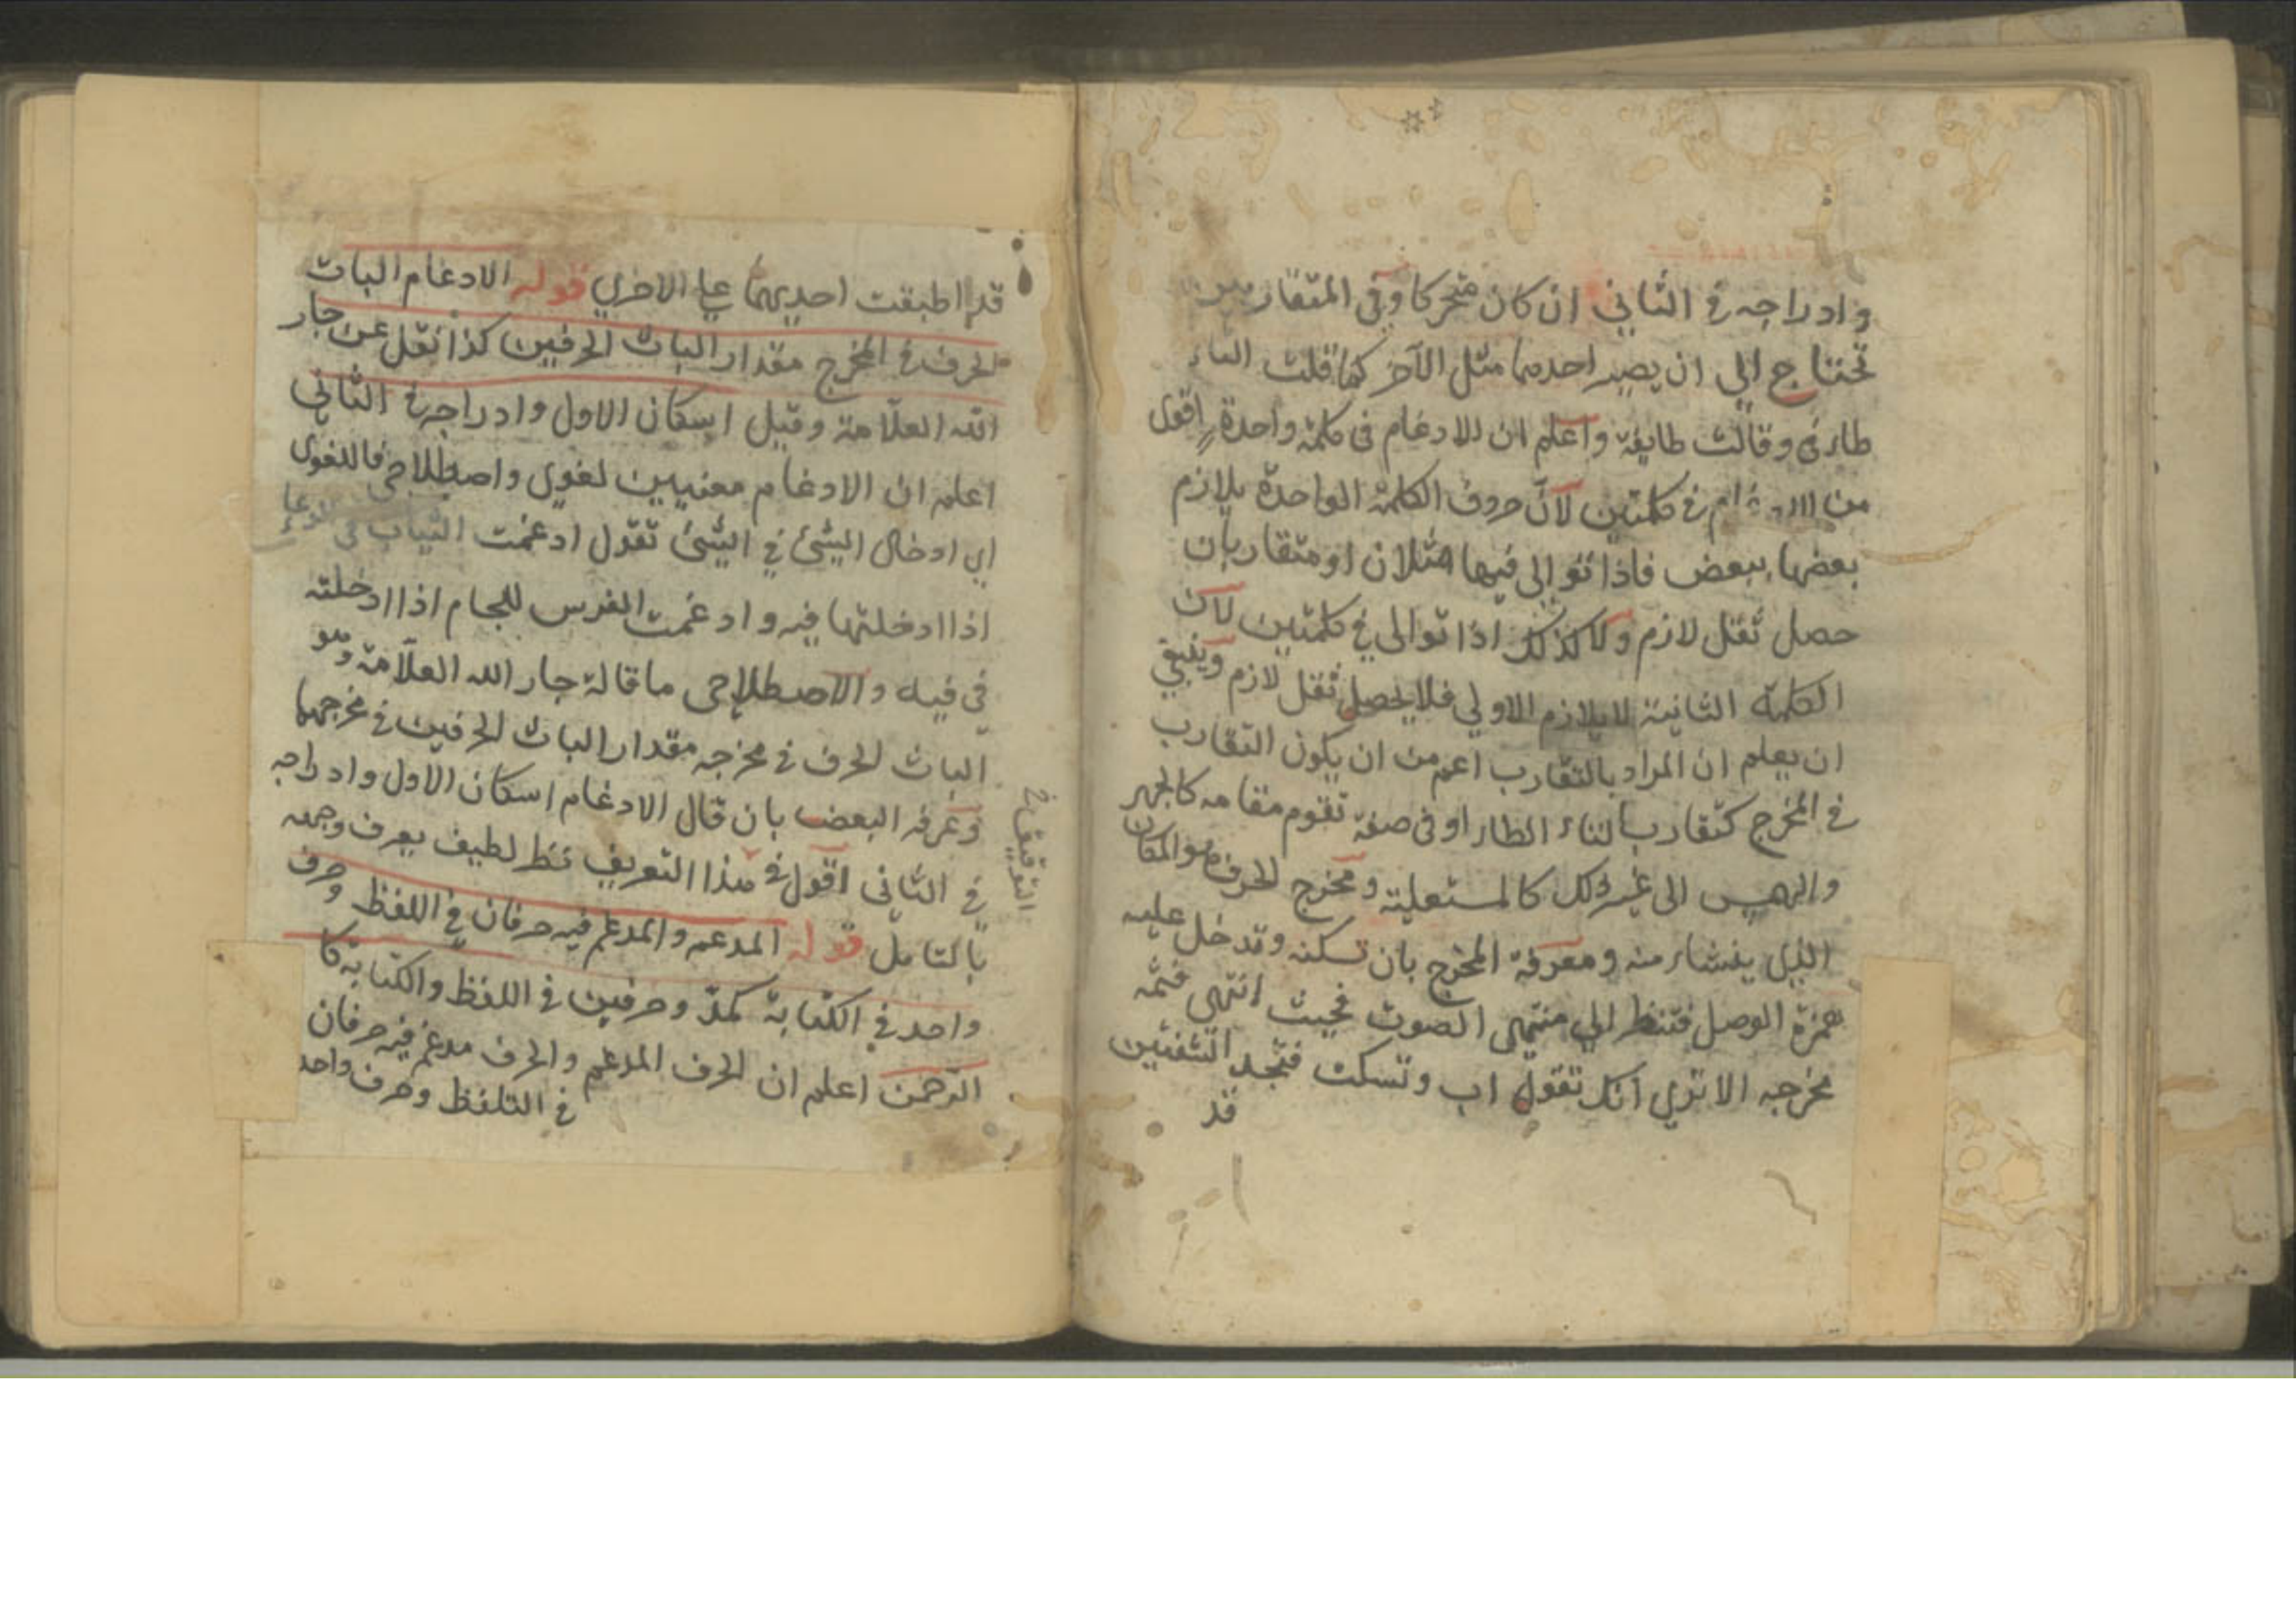 وادراجه في الثاني ان كان متحركا وفي المتقاربين
تحتاج الي ان يصير احدهما مثل الآخر كما قلت التاء
طاء في وقالت طايفة واعلم ان للادغام في كلمة واحدة اقوى
من الادغام في كلمتين لان حروف الكلمة الواحدة يلازم
بعضها ببعض فاذا توالى فيها مثلان او متقاربان
حصل ثقل لازم ولا كذلك اذا توالى في كلمتين لان
الكلمة الثانية لا يلازم الاولي فلا يحصل ثقل لازم وينبغي
ان يعلم ان المراد بالتقارب اعم من ان يكون التقارب
في المخرج كتقارب التاء الطاء او في صفة تقوم مقامه كالجهر
والهمس الى غير ذلك كالمستعلية ومخرج الحرف هو المكان
الذي ينشاء منه ومعرفة المخرج بان تسكنه وتدخل عليه
همزة الوصل فتنظر الي منتهى الصوت فحيث انتهى فثمه
مخرجه الا تري انك تقول اب وتسكت فتجد الشفتين
قد
قد اطبقت احديهما علي الاخري قوله الادغام الباث
الحرف في المخرج مقدار الباث الحرفين كذا نقل عن جار
الله العلامة وقيل اسكان الاول وادراجه في الثاني
اعلم ان الادغام معنيين لغوي واصطلاحي فاللغوى
اي ادخال الشئ في الشئ تقول ادغمت الثياب في الوعا
اذا ادخلتها فيه وادغمت الفرس اللجام اذا ادخلته
في فيه والاصطلاحى ما قاله جار الله العلامة وهو
الباث الحرف في مخرجه مقدار الباث الحرفين في مخرجهما
وعرفه البعض بان قال الادغام اسكان الاول وادراجه
في الثاني اقول في هذا التعريف نظر لطيف يعرف وجهه
بالتامل قوله المدغم والمدغم فيه حرفان في اللفظ وحرف
واحد في الكتابة كمدّ وحرفين في اللفظ والكتابة كا
الرحمن اعلم ان الحرف المدغم والحرف مدغم فيه حرفان
في التلفظ وحرف واحد